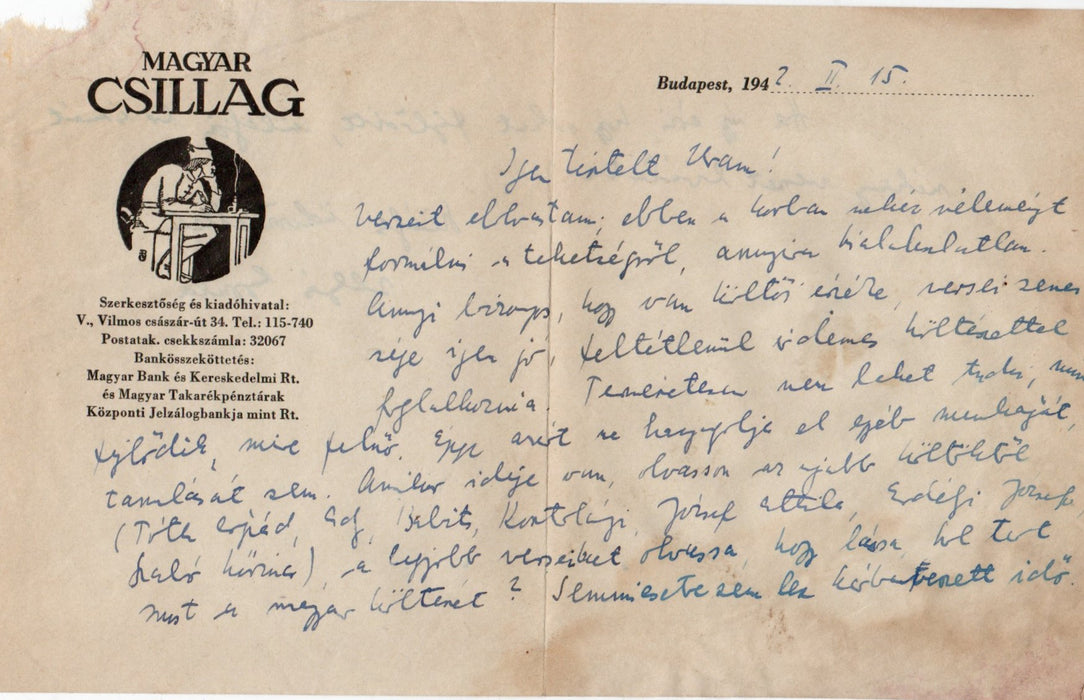 MAGYAR
CSILLAG
Szerkesztőség és kiadóhivatal:
V., Vilmos császár-út 34. Tel.: 115-740
Postatak. csekkszámla: 32067
Bankösszeköttetés:
Magyar Bank és Kereskedelmi Rt.
és Magyar Takarékpénztárak
Központi Jelzálogbankja mint Rt.
Budapest, 1942. II. 15.
Igen tisztelt Uram!
Verseit elolvastam; ebben a korban nehéz véleményt
formálni a tehetségről, annyira kialakulatlan.
Annyi bizonyos, hogy van költői érzéke, versei zenei
sége igen jó, feltétlenül érdemes költészettel
foglalkoznia. Természetesen nem lehet tudni,
fejlődik, mire felnő. Épp azért ne hanyagolja el egyéb munkáját,
tanulását sem. Amikor ideje van, olvasson az újabb költőktől
(Tóth Árpád, Ady, Babits, Kosztolányi, József Attila, Erdélyi József,
Szabó Lőrinc), a legjobb verseiket olvassa, hogy lássa, hol tart
most a magyar költészet? Semmiesetre sem lesz kárbaveszett idő.